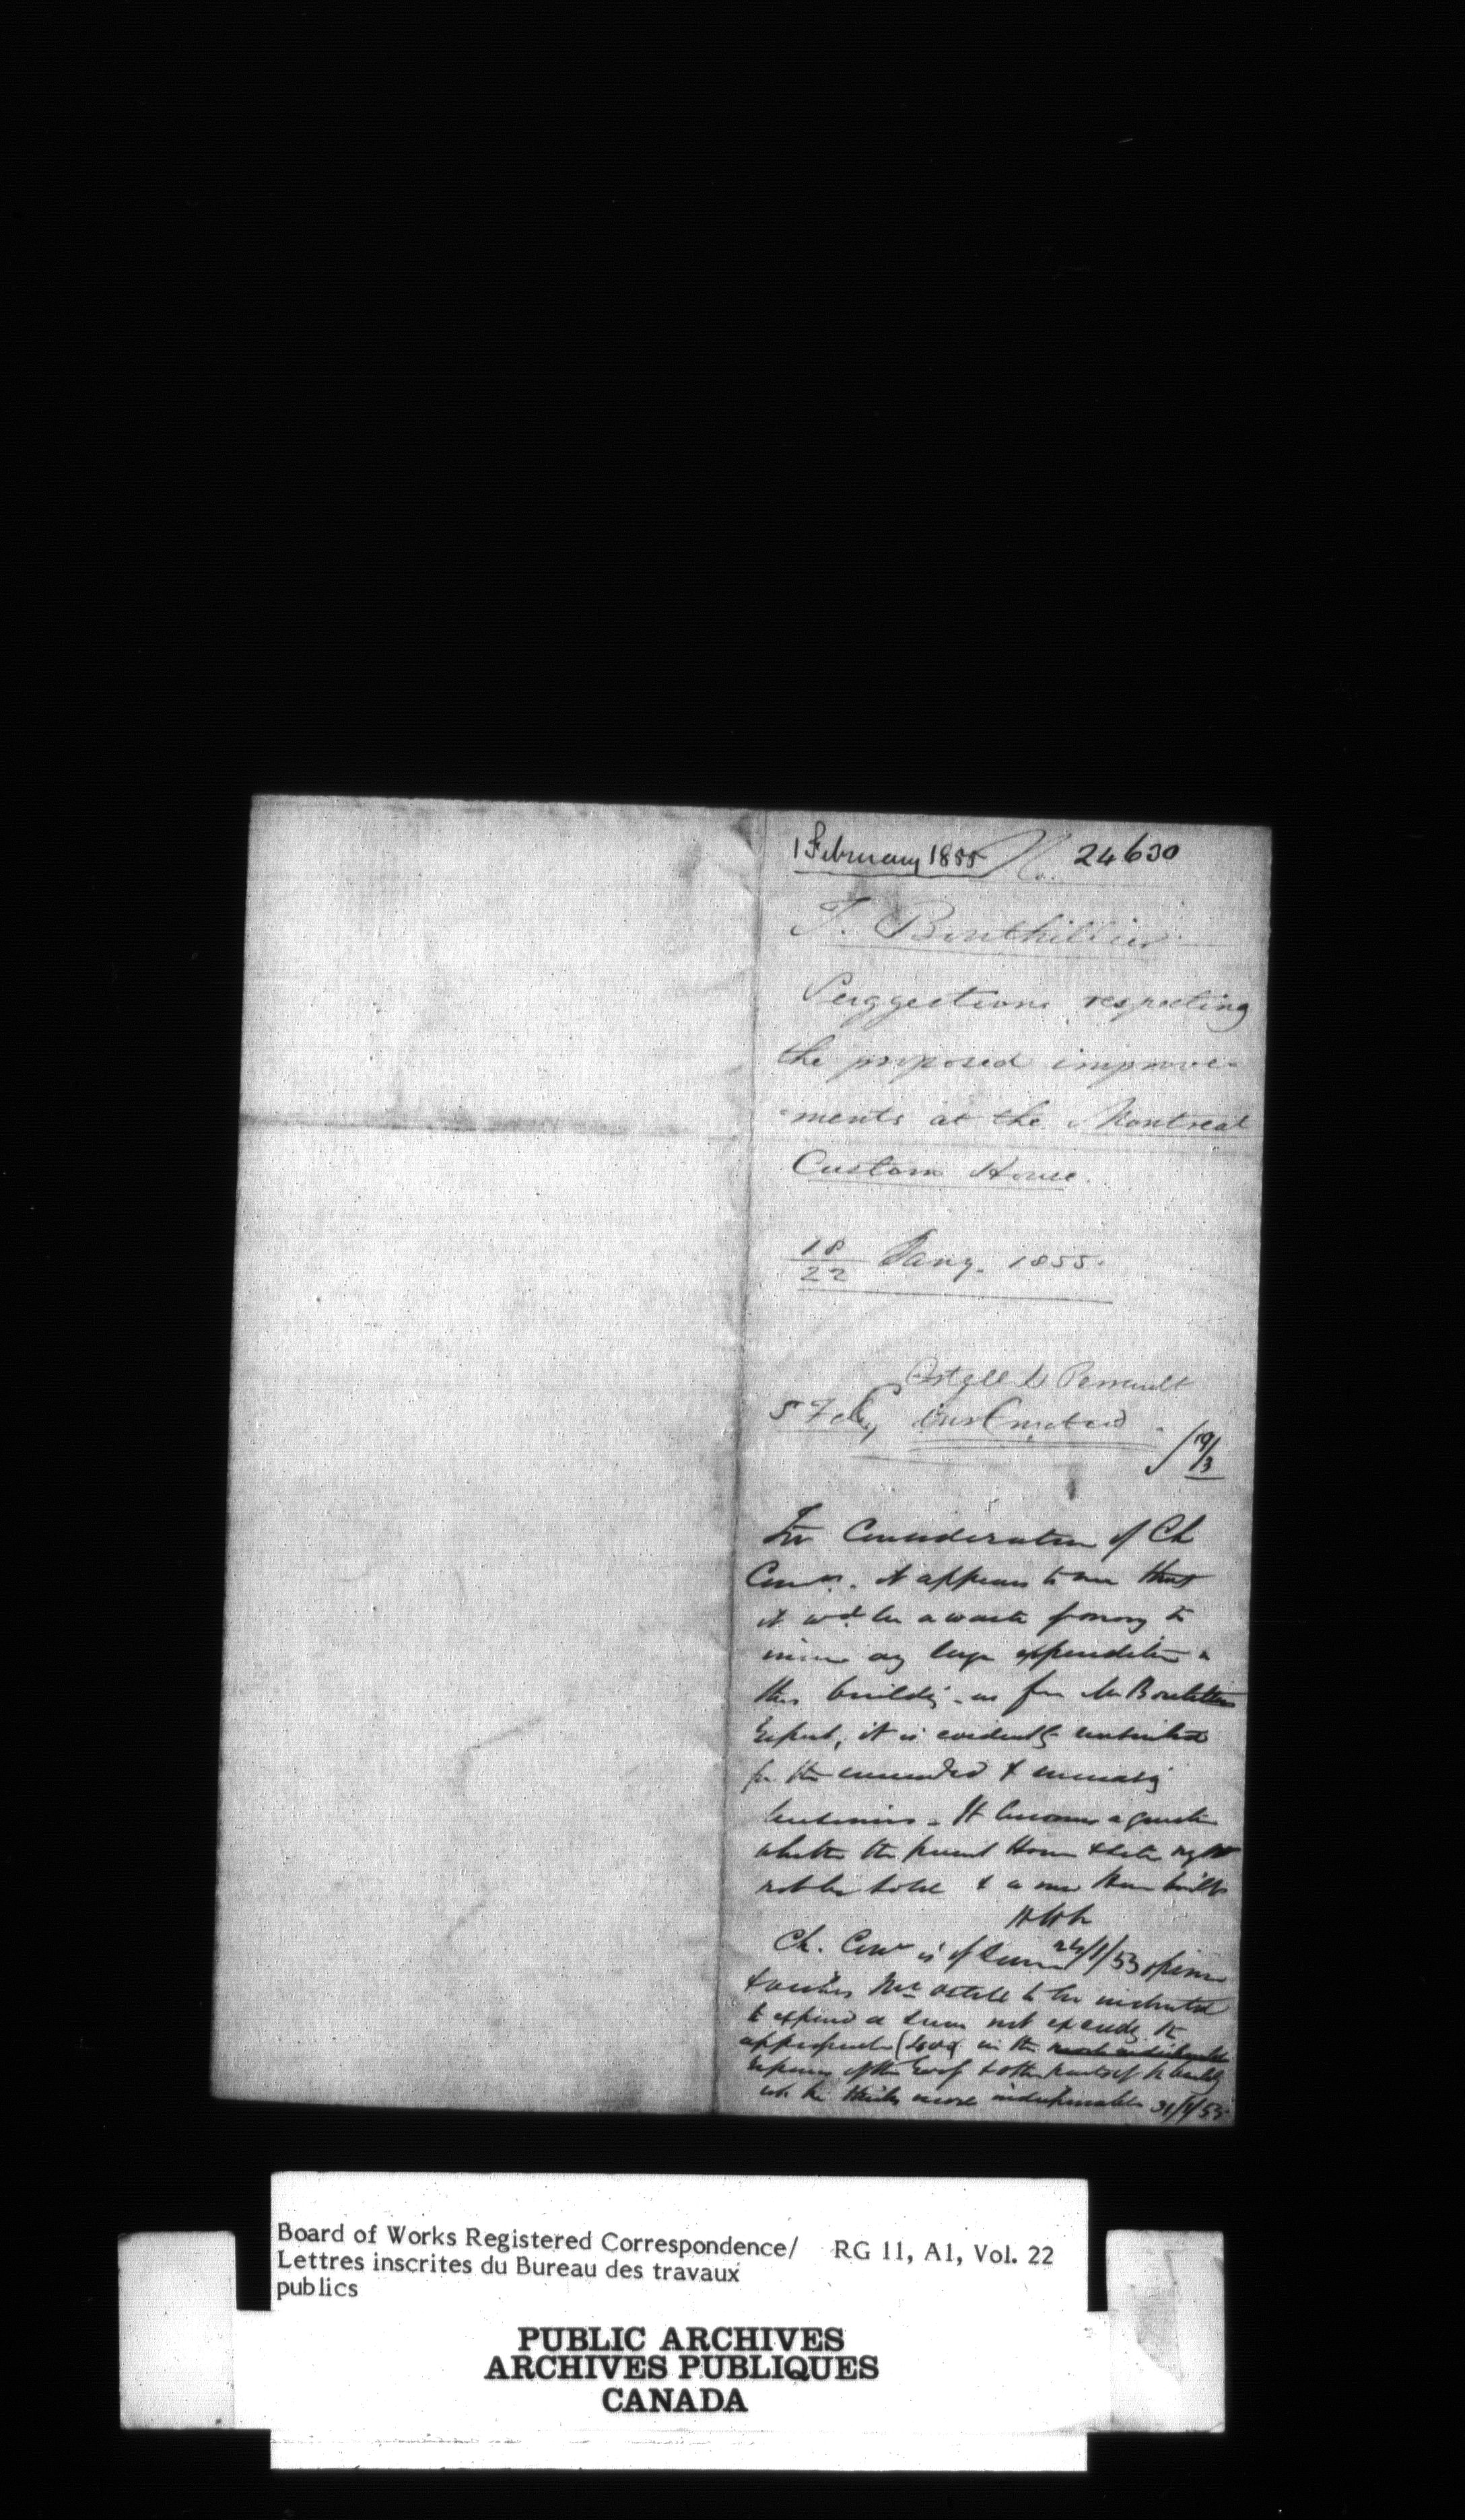 1 February 1855 No. 24630
T. Bouthillier
Suggestions respecting
the proposed improve-
-ments at the Montreal
Custom House.
18/22 Jany. 1855.
Ostell & Perrault
5 Feby instructed
19/3
For Consideration of Ch
Comr. It appears to me that
it wd. be a waste of money to
incur any large expenditure
this building - as from Mr Bouthillier
report, it is evidently unsuited
for the & increasing
business - It becomes a question
whether the present House & site might
not be sold & a new House built
HHK
Ch. Comr is of same 24/1/55 opinion
& wishes Mr. Ostell to be instructed
to expend a sum not exceedg the
appropriation in the most indispensable
repairs of the Roof & other parts of the buildg
wh he thinks more indispensable 31/1/55
Board of Works Registered Correspondence/ RG 11, A1, Vol. 22
Lettres inscrites du Bureau des travaux
publics
PUBLIC ARCHIVES
ARCHIVES PUBLIQUES
CANADA